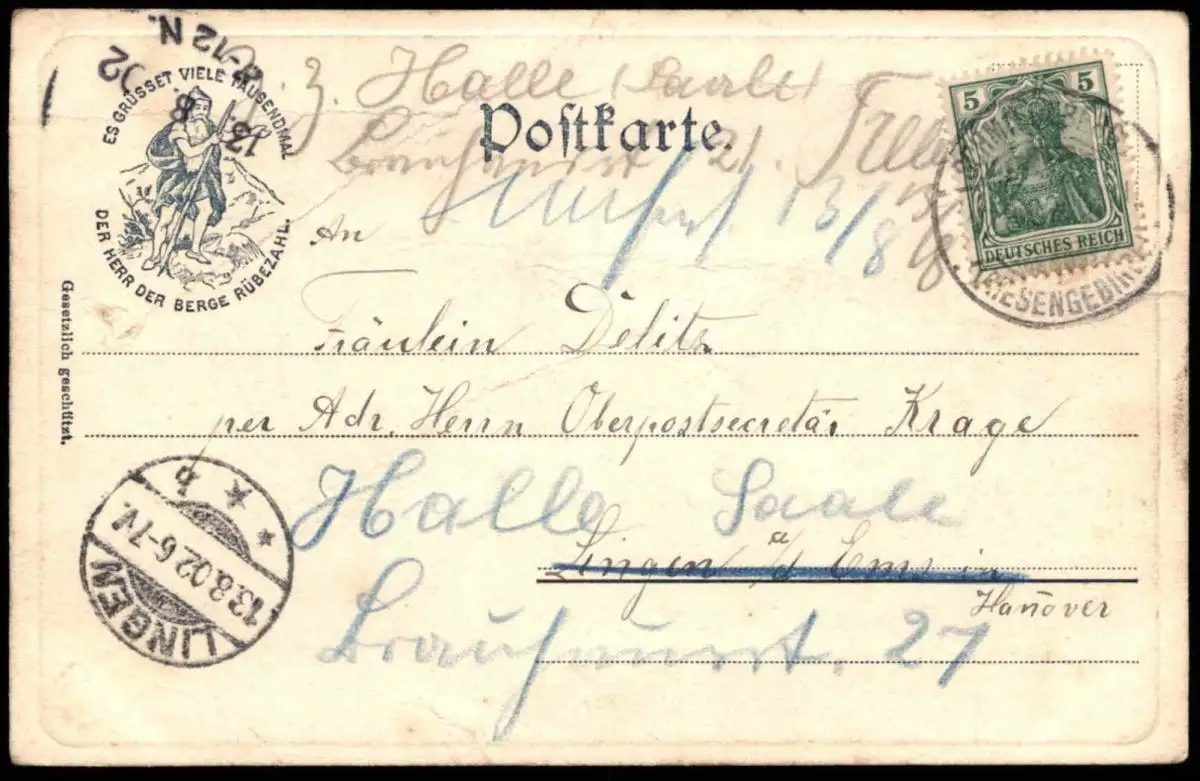 ES GRÜSSET VIELE TAUSENDMAL
DER HERR DER BERGE RÜBEZAHL.
13. 8. 02
8-12 N.
z. Z. Halle (Saale)
Postkarte.
5 5
DEUTSCHES REICH
RIESENGEBIR
13/8
An
Fräulein Delitz
per Adr. Herrn Oberpostsecretär Krage
Halle Saale
Lingen a/d Ems in
Hannover
27
Gesetzlich geschützt.
LINGEN
13.8.02. 6-7V.
* * b